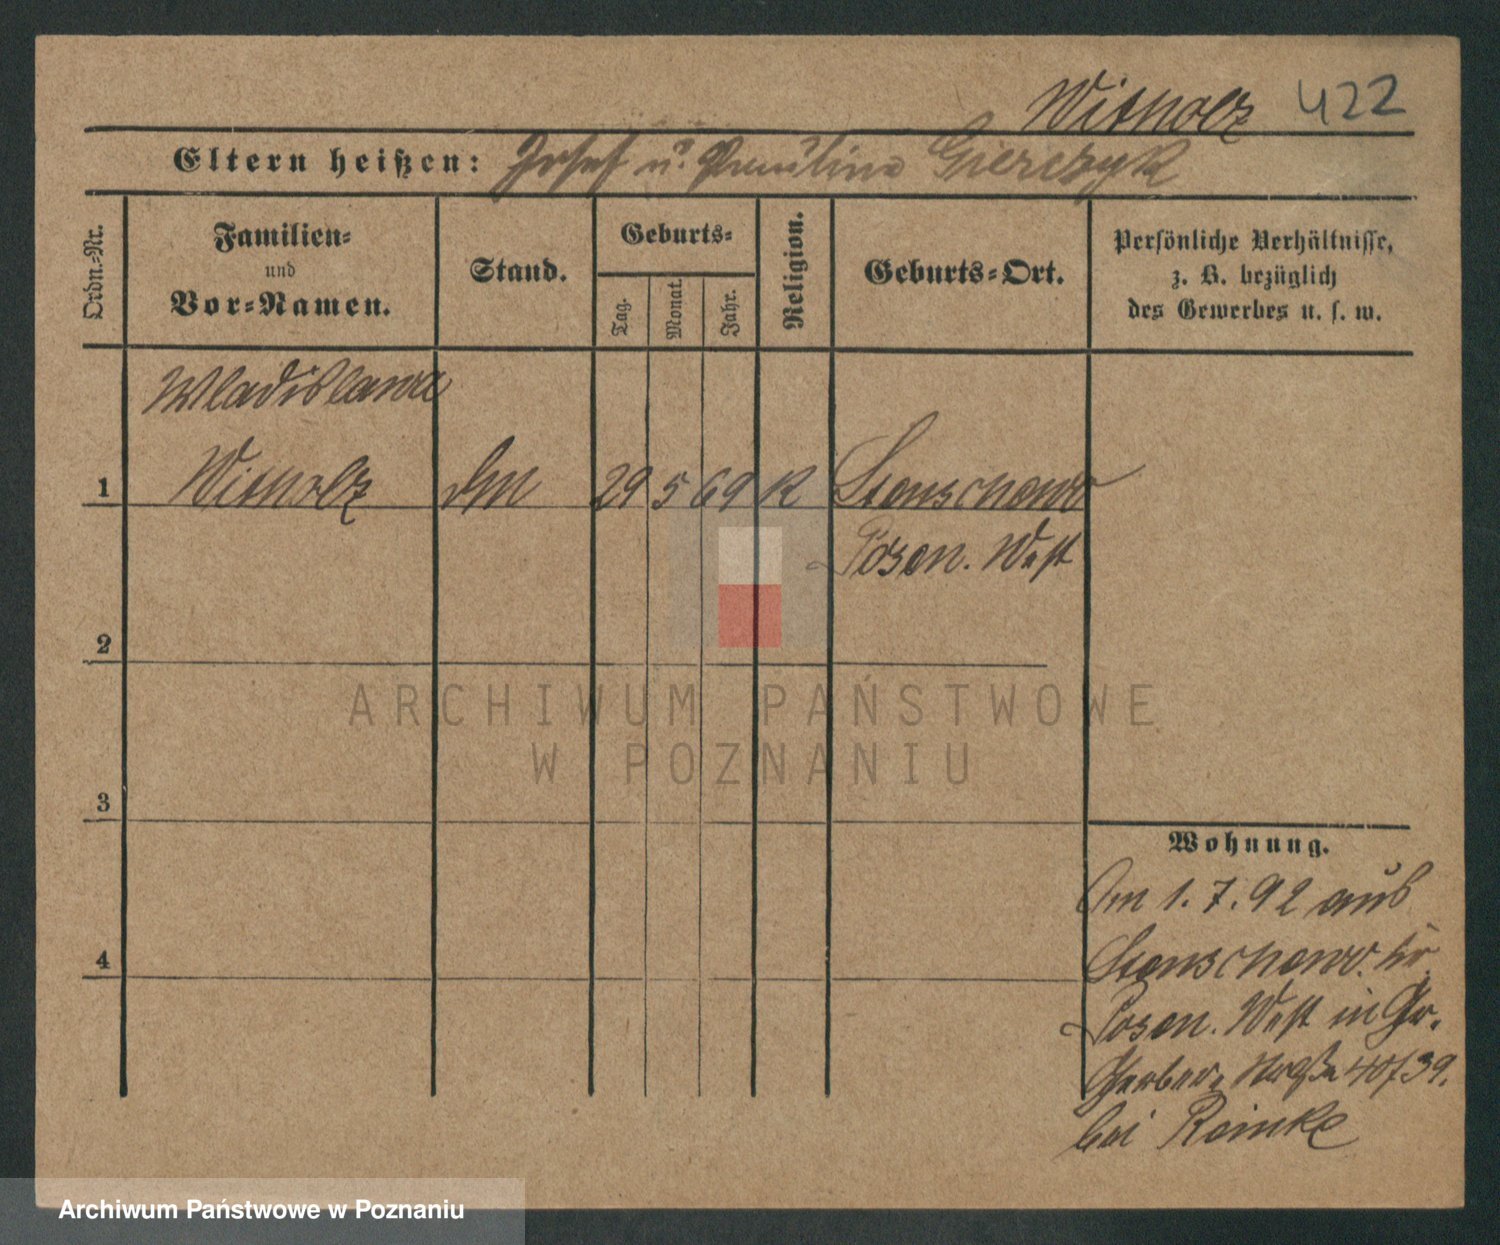 Witholz 422
Eltern heißen: Josef u. Paulina Gierczyk
Ordn.-Nr.
Familien-
und
Vor-Namen.
Stand.
Geburts-
Tag.
Monat.
Jahr.
Religion.
Geburts-Ort.
Persönliche Verhältnisse,
z. B. bezüglich
des Gewerbes u. s. w.
Wladislawa
1 Witholz 29 5 69 K Stenschewo
Posen. West
2
ARCHIWUM PAŃSTWOWE
W POZNANIU
3
Wohnung.
Am 1. 7. 92 aus
4 Stenschewo. Kr.
Posen. West in Gr.
Gerber. Straße 40/39.
bei Reinke
Archiwum Państwowe w Poznaniu